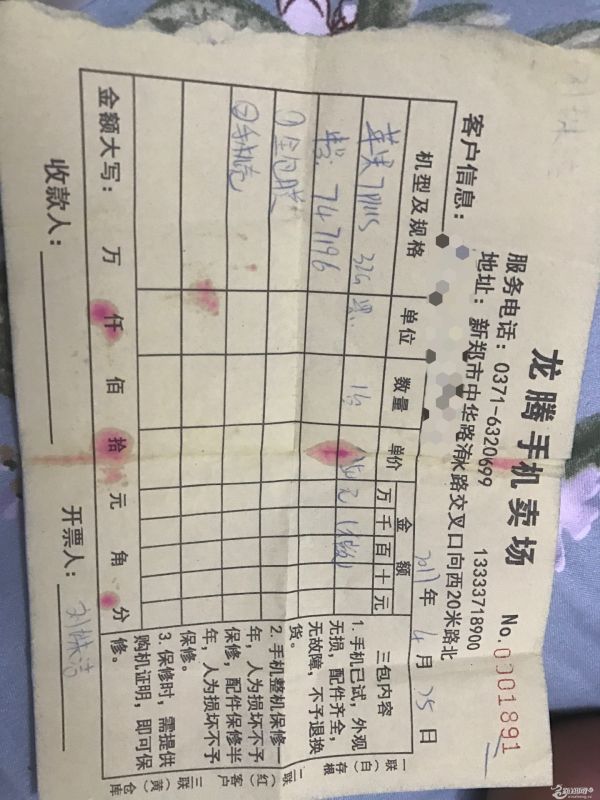 龙腾手机卖场
No.0001891
服务电话：0371-6320699 13333718900
地址：新郑市中华路洧水路交叉口向西20米路北
客户信息：
2017年4月25日
机型及规格 单位 数量 单价 金额
万千百十元
苹果7plus 32G 黑 1台
串号：747196
①全包膜
②手机壳
金额大写： 万 仟 佰 拾 元 角 分
收款人： 开票人：
三包内容
1. 手机已试，外观无损，配件齐全，无故障，不予退换货。
2. 手机整机保修一年，人为损坏不予保修，配件保修半年，人为损坏不予保修。
3. 保修时，需提供购机证明，即可保修。
一联（白）存根
二联（红）客户
三联（黄）仓库